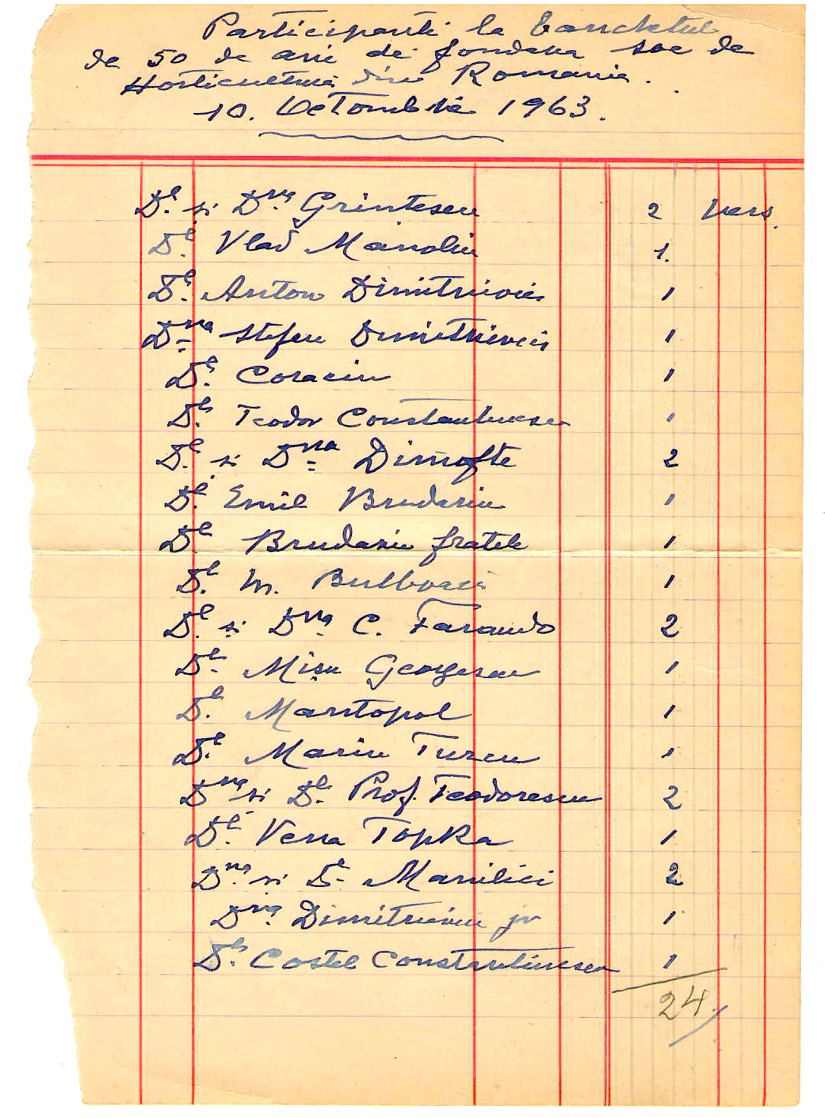 Participanti la bancketul
de 50 de ani de fondarea soc de
Horticultura din Romania.
10. Octombrie 1963.
Dl. si Dna Grintescu 2 pers.
Dl. Vlad Manoliu 1.
Dl. Anton Dimitrievici 1
Dna Stefan Dimitrievici 1
Dl. Coraciu 1
Dl. Teodor Constantinescu 1
Dl. si Dna Dimofte 2
Dl. Emil Brudariu 1
Dl. Brudariu fratele 1
Dl. M. 1
Dl. si Dna C. Faraudo 2
Dl. Misu Georgescu 1
Dl. Mantopol 1
Dl. Mariu Turcu 1
Dna si Dl. Prof. Teodorescu 2
Dl. Vena Topka 1
Dna si Dl Manilici 2
Dna Dimitrieviu jr 1
Dl. Costel Constantinescu 1
24